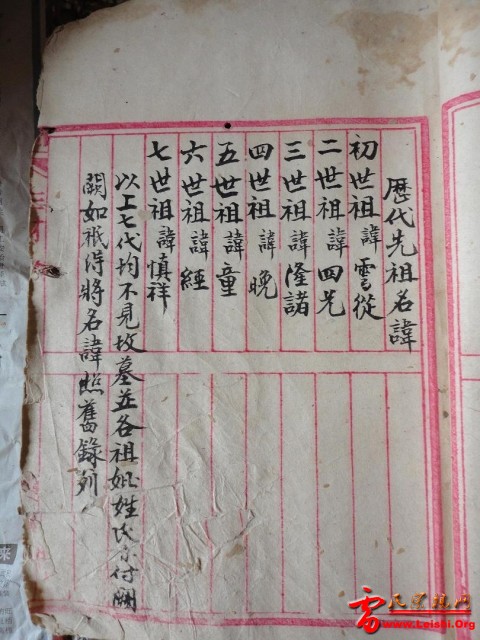 歷代先祖名諱
初世祖諱雲從
二世祖諱四兄
三世祖諱隆諸
四世祖諱晚
五世祖諱童
六世祖諱經
七世祖諱慎祥
以上七代均不見坟墓並各祖妣姓氏亦付闕
闕如祇得將名諱照舊錄列
雷氏宗親网
www.Leishi.Org
来